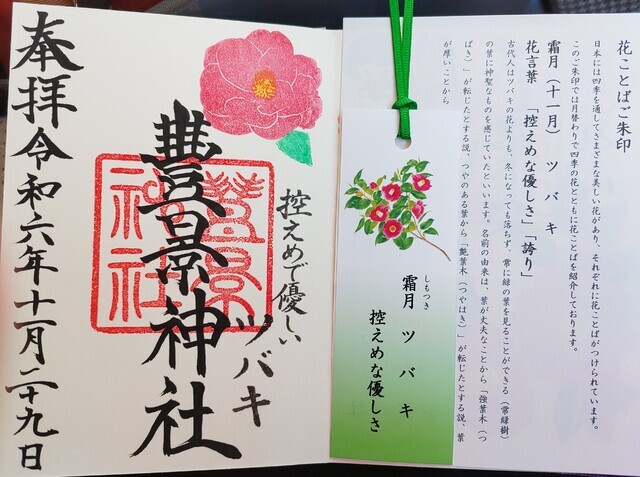 花ことばご朱印
日本には四季を通してさまざまな美しい花があり、それぞれに花ことばがつけられています。
このご朱印では月替わりで四季の花とともに花ことばを紹介しております。
霜月（十一月）　ツバキ
花言葉　「控えめな優しさ」「誇り」
古代人はツバキの花よりも、冬になっても落ちず、常に緑の葉を見ることができる（常緑樹）
の葉に神聖なものを感じていたといいます。名前の由来は、葉が丈夫なことから「強葉木（つ
ばき）」が転じたとする説、つやのある葉から「艶葉木（つやはき）」が転じたとする説、葉
が厚いことから
しもつき
霜月　ツバキ
控えめな優しさ
控えめで優しい
ツバキ
豊景神社
豊景神社
奉拝　令和六年十一月二十九日